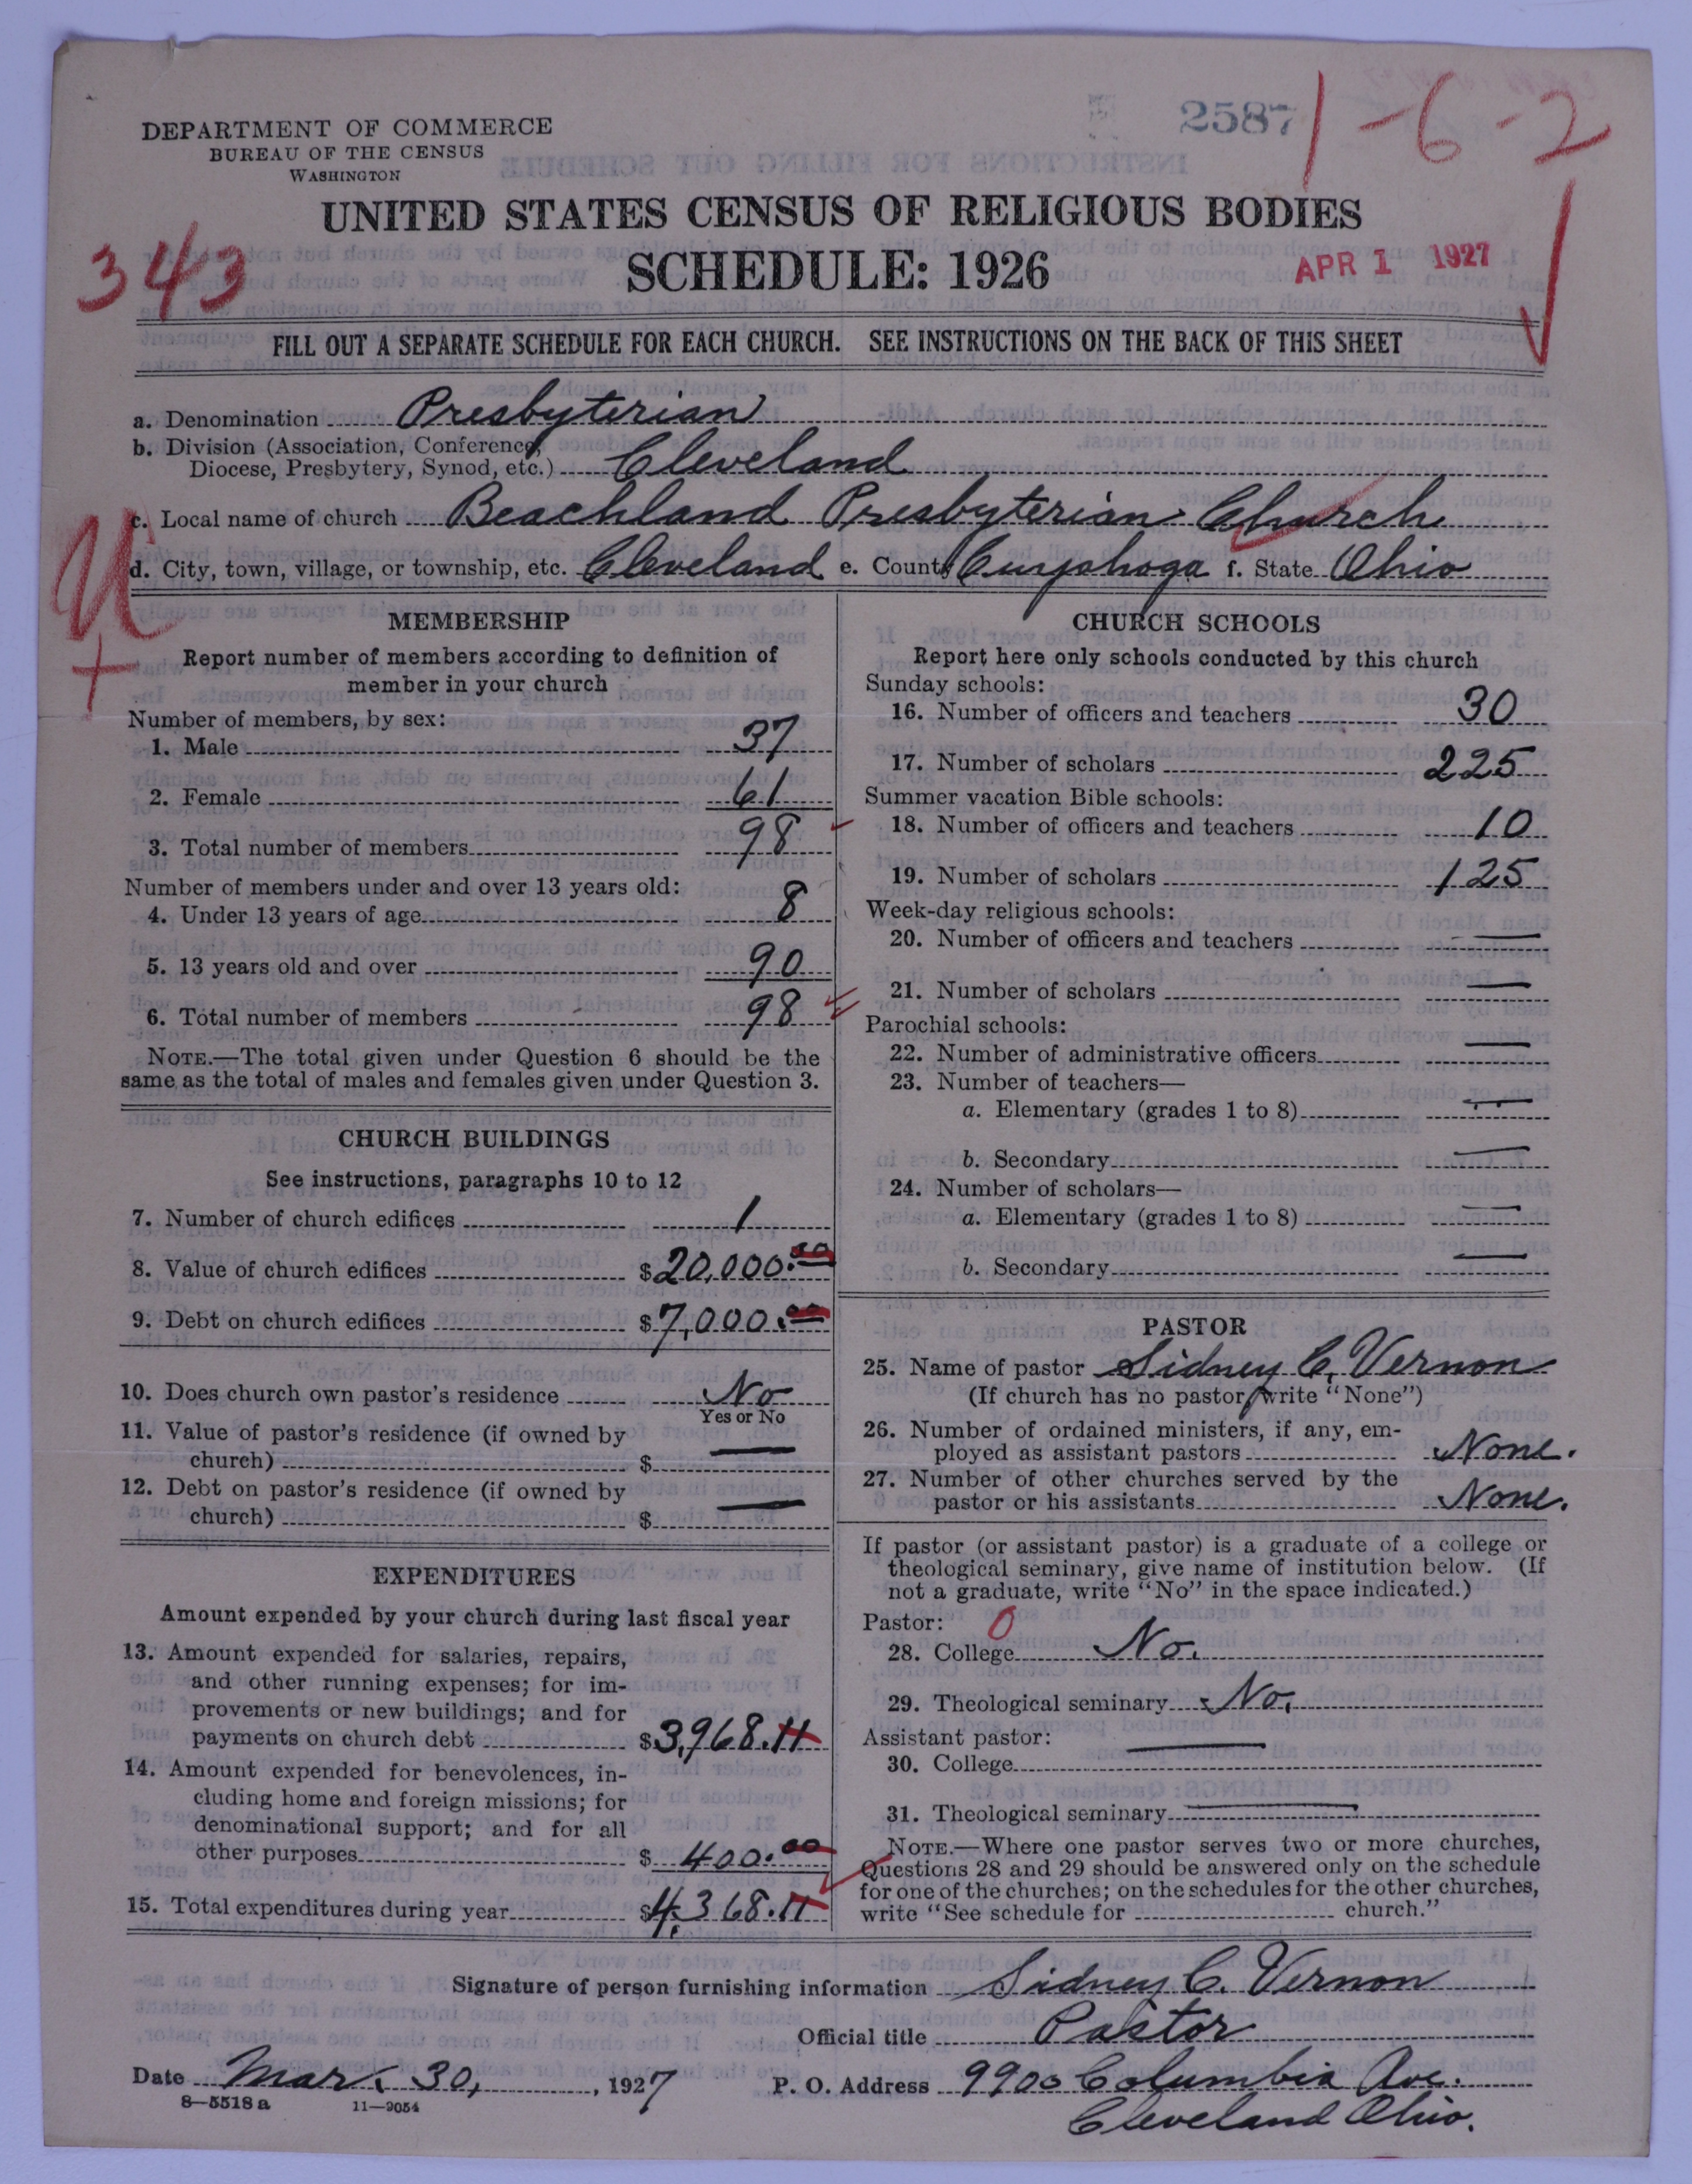 2587 1-6-2
DEPARTMENT OF COMMERCE
BUREAU OF THE CENSUS
WASHINGTON
UNITED STATES CENSUS OF RELIGIOUS BODIES
343 SCHEDULE: 1926 APR 1 1927
FILL OUT A SEPARATE SCHEDULE FOR EACH CHURCH. SEE INSTRUCTIONS ON THE BACK OF THIS SHEET
a. Denomination Presbyterian
b. Division (Association, Conference,
Diocese, Presbytery, Synod, etc.) Cleveland
c. Local name of church Beachland Presbyterian Church
d. City, town, village, or township, etc. Cleveland e. County Cuyahoga f. State Ohio
U
+
MEMBERSHIP
Report number of members according to definition of
member in your church
Number of members, by sex:
1. Male 37
2. Female 61
3. Total number of members 98
Number of members under and over 13 years old:
4. Under 13 years of age 8
5. 13 years old and over 90
6. Total number of members 98
NOTE.—The total given under Question 6 should be the
same as the total of males and females given under Question 3.
CHURCH BUILDINGS
See instructions, paragraphs 10 to 12
7. Number of church edifices 1
8. Value of church edifices $20,000.00
9. Debt on church edifices $7,000.00
10. Does church own pastor's residence No
Yes or No
11. Value of pastor's residence (if owned by
church) $ —
12. Debt on pastor's residence (if owned by
church) $ —
EXPENDITURES
Amount expended by your church during last fiscal year
13. Amount expended for salaries, repairs,
and other running expenses; for im-
provements or new buildings; and for
payments on church debt $3,968.11
14. Amount expended for benevolences, in-
cluding home and foreign missions; for
denominational support; and for all
other purposes $ 400.00
15. Total expenditures during year $4,368.11
CHURCH SCHOOLS
Report here only schools conducted by this church
Sunday schools:
16. Number of officers and teachers 30
17. Number of scholars 225
Summer vacation Bible schools:
18. Number of officers and teachers 10
19. Number of scholars 125
Week-day religious schools:
20. Number of officers and teachers —
21. Number of scholars —
Parochial schools:
22. Number of administrative officers —
23. Number of teachers—
a. Elementary (grades 1 to 8) —
b. Secondary —
24. Number of scholars—
a. Elementary (grades 1 to 8) —
b. Secondary —
PASTOR
25. Name of pastor Sidney C. Vernon
(If church has no pastor, write "None")
26. Number of ordained ministers, if any, em-
ployed as assistant pastors None.
27. Number of other churches served by the
pastor or his assistants None.
If pastor (or assistant pastor) is a graduate of a college or
theological seminary, give name of institution below. (If
not a graduate, write "No" in the space indicated.)
Pastor: 0
28. College No.
29. Theological seminary No.
Assistant pastor: —
30. College
31. Theological seminary —
NOTE.—Where one pastor serves two or more churches,
Questions 28 and 29 should be answered only on the schedule
for one of the churches; on the schedules for the other churches,
write "See schedule for church."
Signature of person furnishing information Sidney C. Vernon
Official title Pastor
Date Mar. 30, , 1927 P. O. Address 9900 Columbia Ave.
8—5518a 11—9054 Cleveland Ohio.